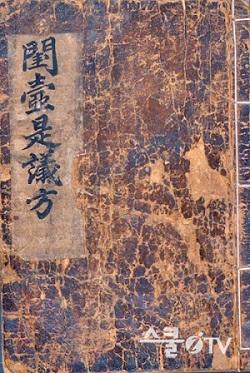 閨壼是議方
스쿨iTV